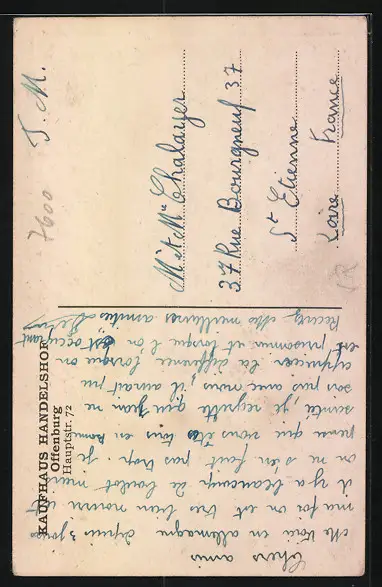 Chers amis
Me voici en allemagne depuis 3 jours
ma foi on est très bien nourri et
il y a beaucoup de boulot mais
on ne s'en fait pas trop. Je
pense que vous êtes tous en bonne
santé, je regrette que Jean ne
soit pas avec nous, il aurait pu
apprécier la différence lorsque on
est prisonnier et lorsque l'on est occupant
Recevez mes meilleures amitiés
KAUFHAUS HANDELSHOF
Offenburg
Hauptstr. 72
7600
F. M.
M et Me Chalayer
37 Rue Bourgneuf 37
St Etienne
Loire France